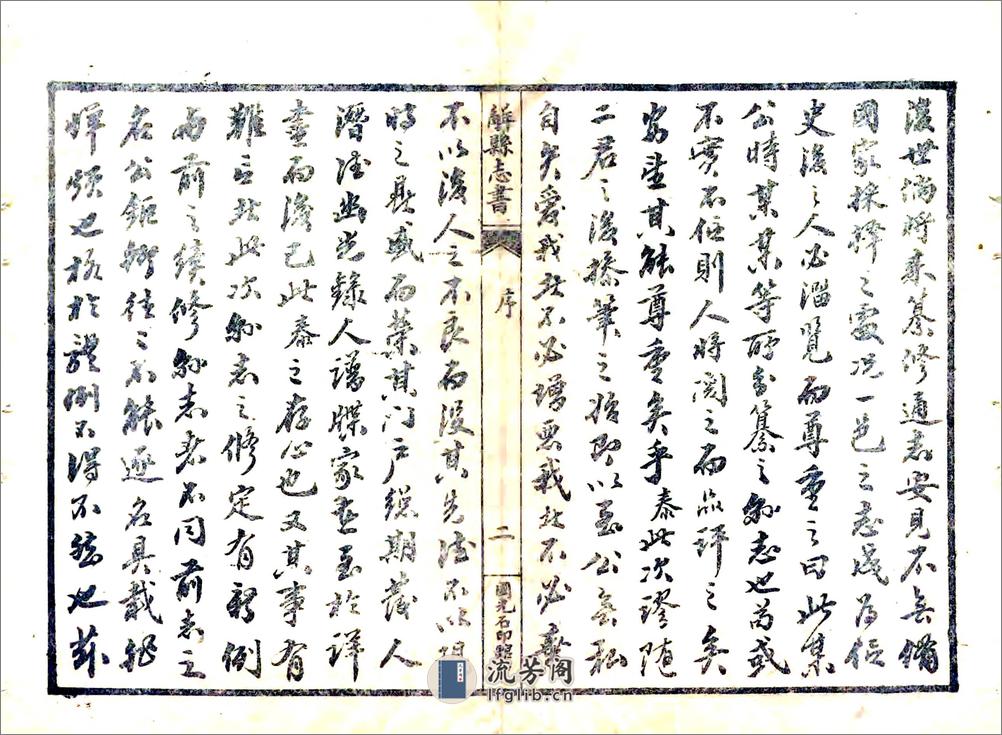 後世倘將來纂修通志安見不無備
國家採擇之處況一邑之志成為信
史後之人必淄覽而尊重之曰此某
公時某某等所分纂之縣志也苟或
不實不信則人將閱之而品評之矣
安望其能尊重矣乎泰此次謬隨
二君之後操筆之損即以至公無私
自矢愛我者不必增惡我者不必
不以後人之不良而沒其先德不以
時之 盛而榮其門戶總期發人
潛德幽光錄人譜牒家 至於詳
盡而後已此泰之存心也又其事有
難言者此次縣志之修定有新例
與前之續修縣志者不同前志之
名公鉅卿往往不能逐名具載非
惲煩也格於體例不得不然也茲
解縣志書
序
二
國光石印館
流芳阁
lfglib.cn